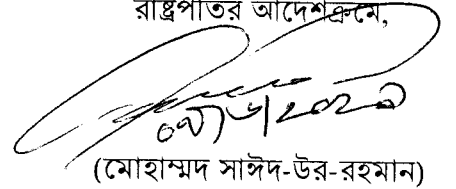 রাষ্ট্রপতির আদেশক্রমে,
(মোহাম্মদ সাঈদ-উর-রহমান)